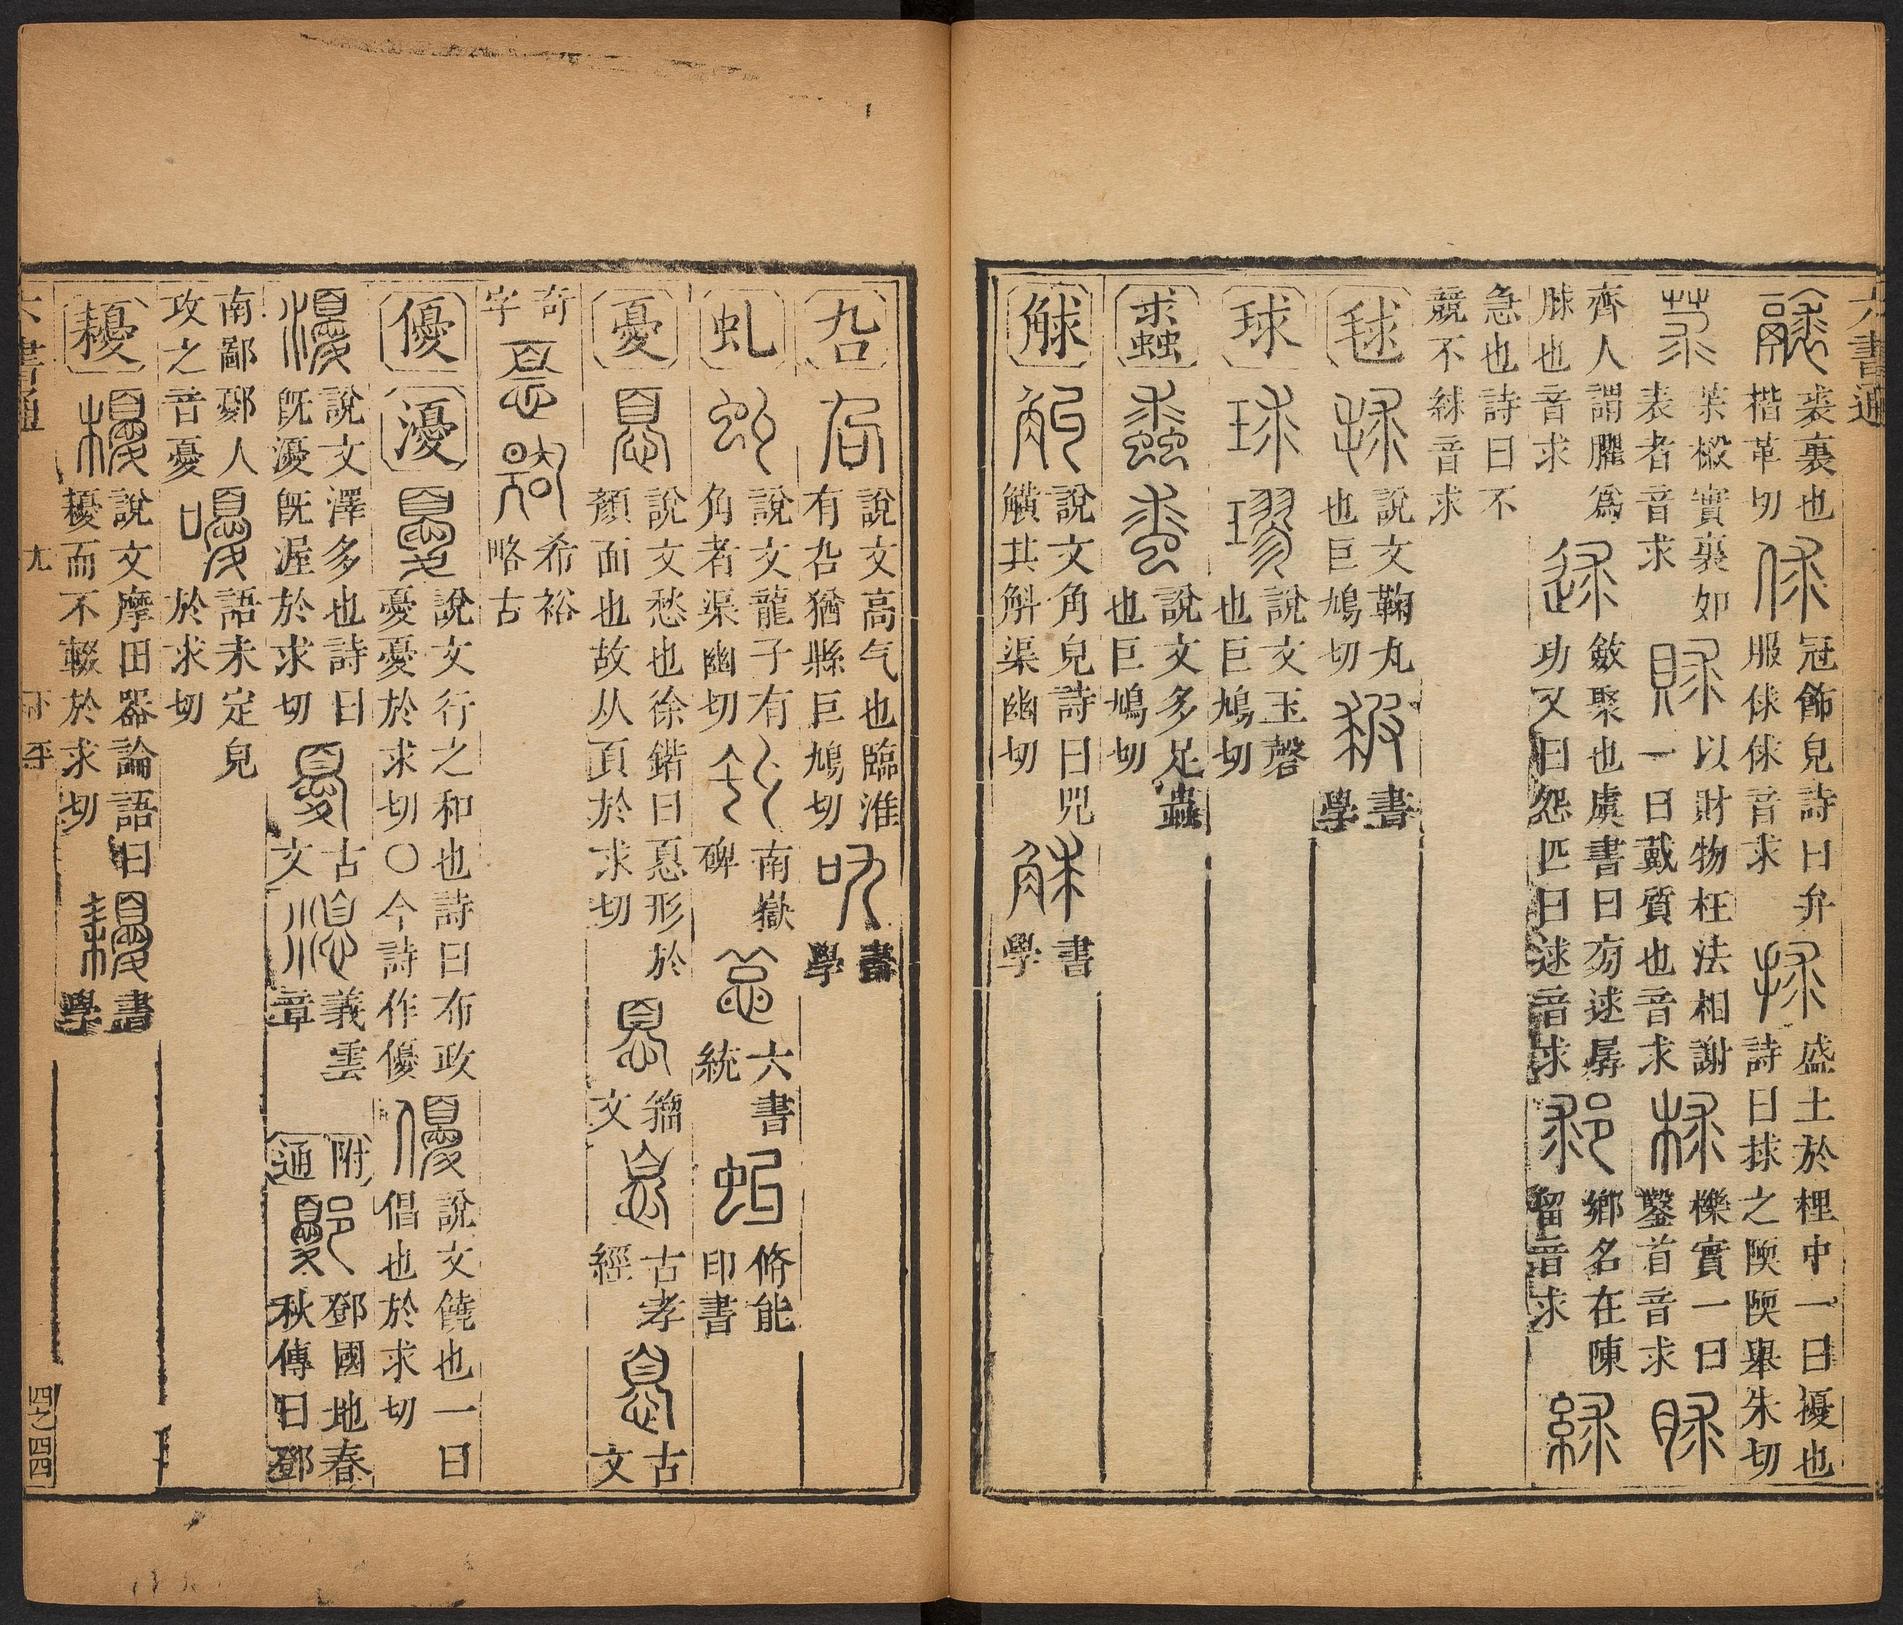 六書通
裘裏也
楷革切
冠飾皃詩曰弁
服俅俅音求
盛土於梩中一曰擾也
詩曰捄之陾陾舉朱切
茮樧實裏如
表者音求
以財物枉法相謝
一曰戴質也音求
櫟實一曰
鑿首音求
齊人謂臞爲
脙也音求
斂聚也虞書曰㫄逑孱
功又曰怨匹曰逑音求
鄉名在陳
留音求
急也詩曰不
競不絿音求
毬
說文鞠丸
也巨鳩切
書學
球
說文玉磬
也巨鳩切
說文多足蟲
也巨鳩切
觩
說文角皃詩曰兕
觵其觓渠幽切
書學
叴
說文高气也臨淮
有叴猶縣巨鳩切
書學
虬
說文龍子有
角者渠幽切
南嶽碑
六書統
脩能印書
憂
說文愁也徐鍇曰㥑形於
顏面也故从頁於求切
籀文
古孝經
古文
奇字
希裕略古
優
瀀
說文行之和也詩曰布政
憂憂於求切〇今詩作優
說文饒也一曰
倡也於求切
說文澤多也詩曰
旣瀀旣渥於求切
古文
義雲章
附通
鄧國地春
秋傳曰鄧
南鄙鄾人
攻之音憂
語未定皃
於求切
耰
說文摩田器論語曰
耰而不輟於求切
書學
六書通 尤 下平 四之四四